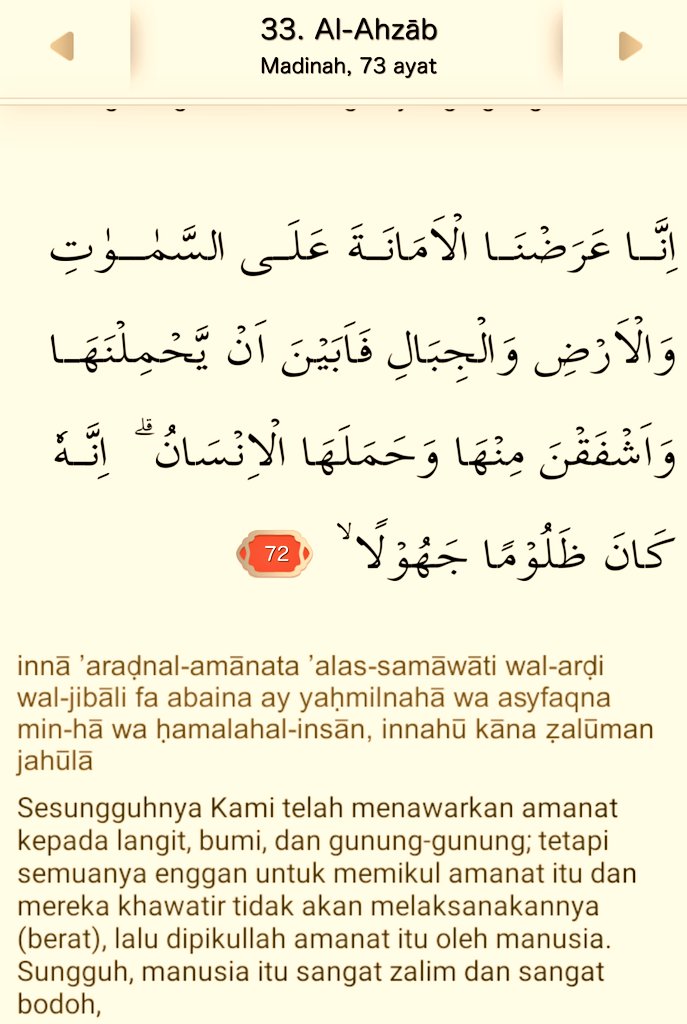 33. Al-Ahzāb
Madinah, 73 ayat
اِنَّا عَرَضْنَا الْاَمَانَةَ عَلَى السَّمٰوٰتِ
وَالْاَرْضِ وَالْجِبَالِ فَاَبَيْنَ اَنْ يَّحْمِلْنَهَا
وَاَشْفَقْنَ مِنْهَا وَحَمَلَهَا الْاِنْسَانُۗ اِنَّهٗ
كَانَ ظَلُوْمًا جَهُوْلًاۙ 72
innā ’araḍnal-amānata ’alas-samāwāti wal-arḍi
wal-jibāli fa abaina ay yaḥmilnahā wa asyfaqna
min-hā wa ḥamalahal-insān, innahū kāna ẓalūman
jahūlā
Sesungguhnya Kami telah menawarkan amanat
kepada langit, bumi, dan gunung-gunung; tetapi
semuanya enggan untuk memikul amanat itu dan
mereka khawatir tidak akan melaksanakannya
(berat), lalu dipikullah amanat itu oleh manusia.
Sungguh, manusia itu sangat zalim dan sangat
bodoh,